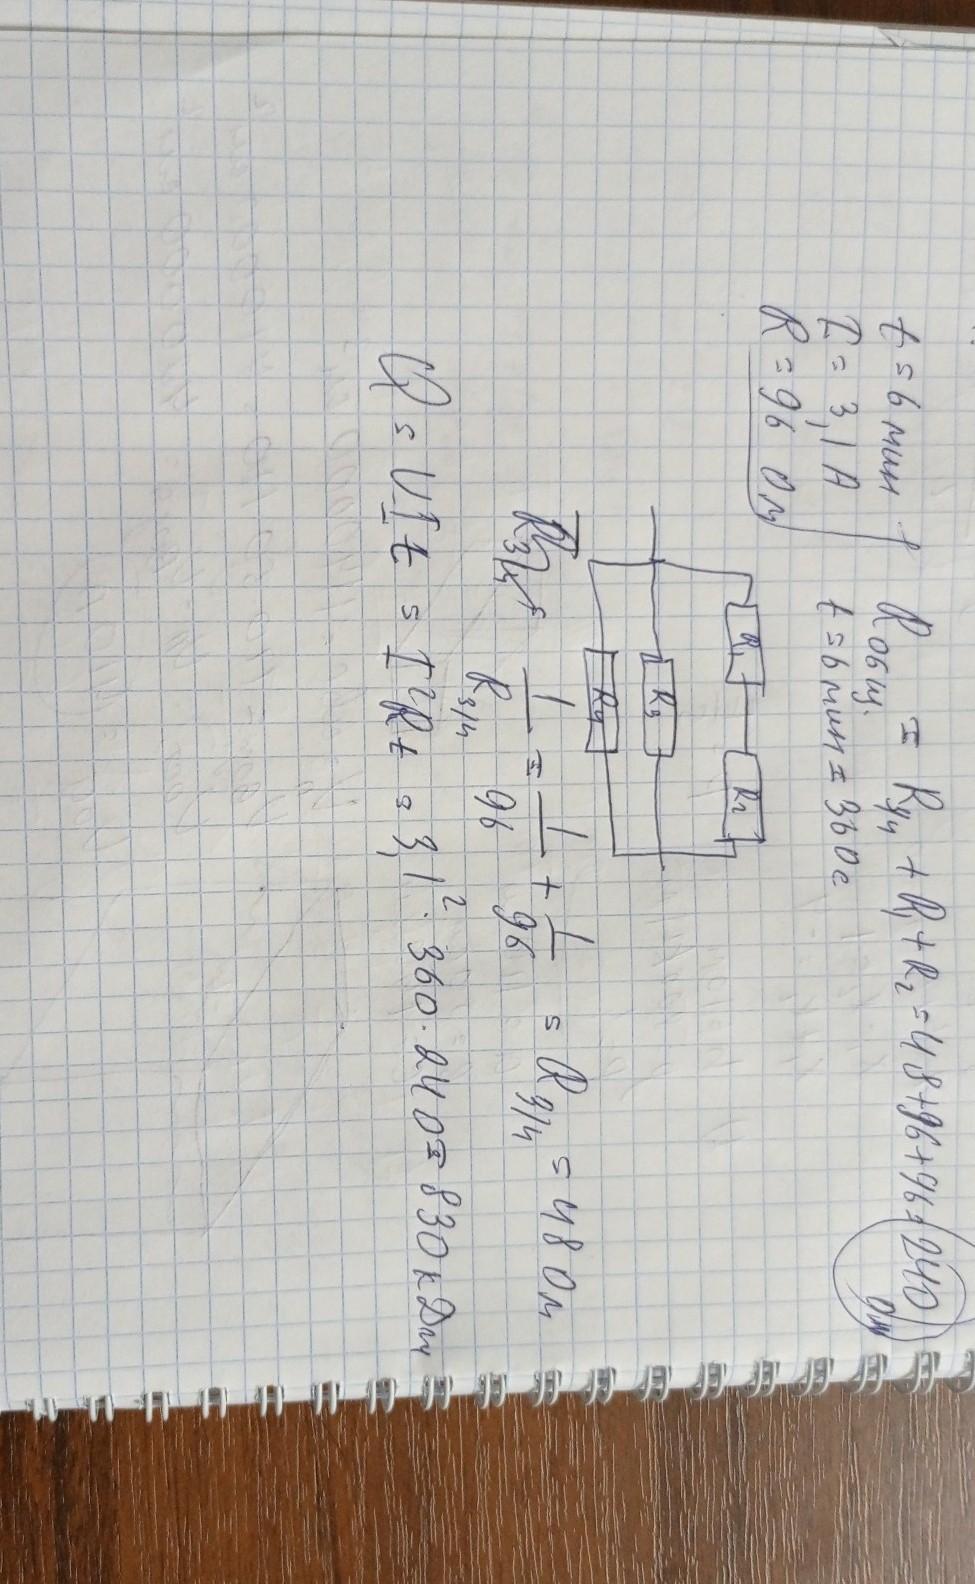 t = 6 мин
I = 3,1 A
R = 96 Ом
Rобщ. = R3/4 + R1 + R2 = 48 + 96 + 96 = 240 Ом
t = 6 мин = 360 с
R1 R2
R3
R4
1/R3/4 = 1/96 + 1/96 = R3/4 = 48 Ом
Q = UIt = I²Rt = 3,1² · 360 · 240 = 830 кДж